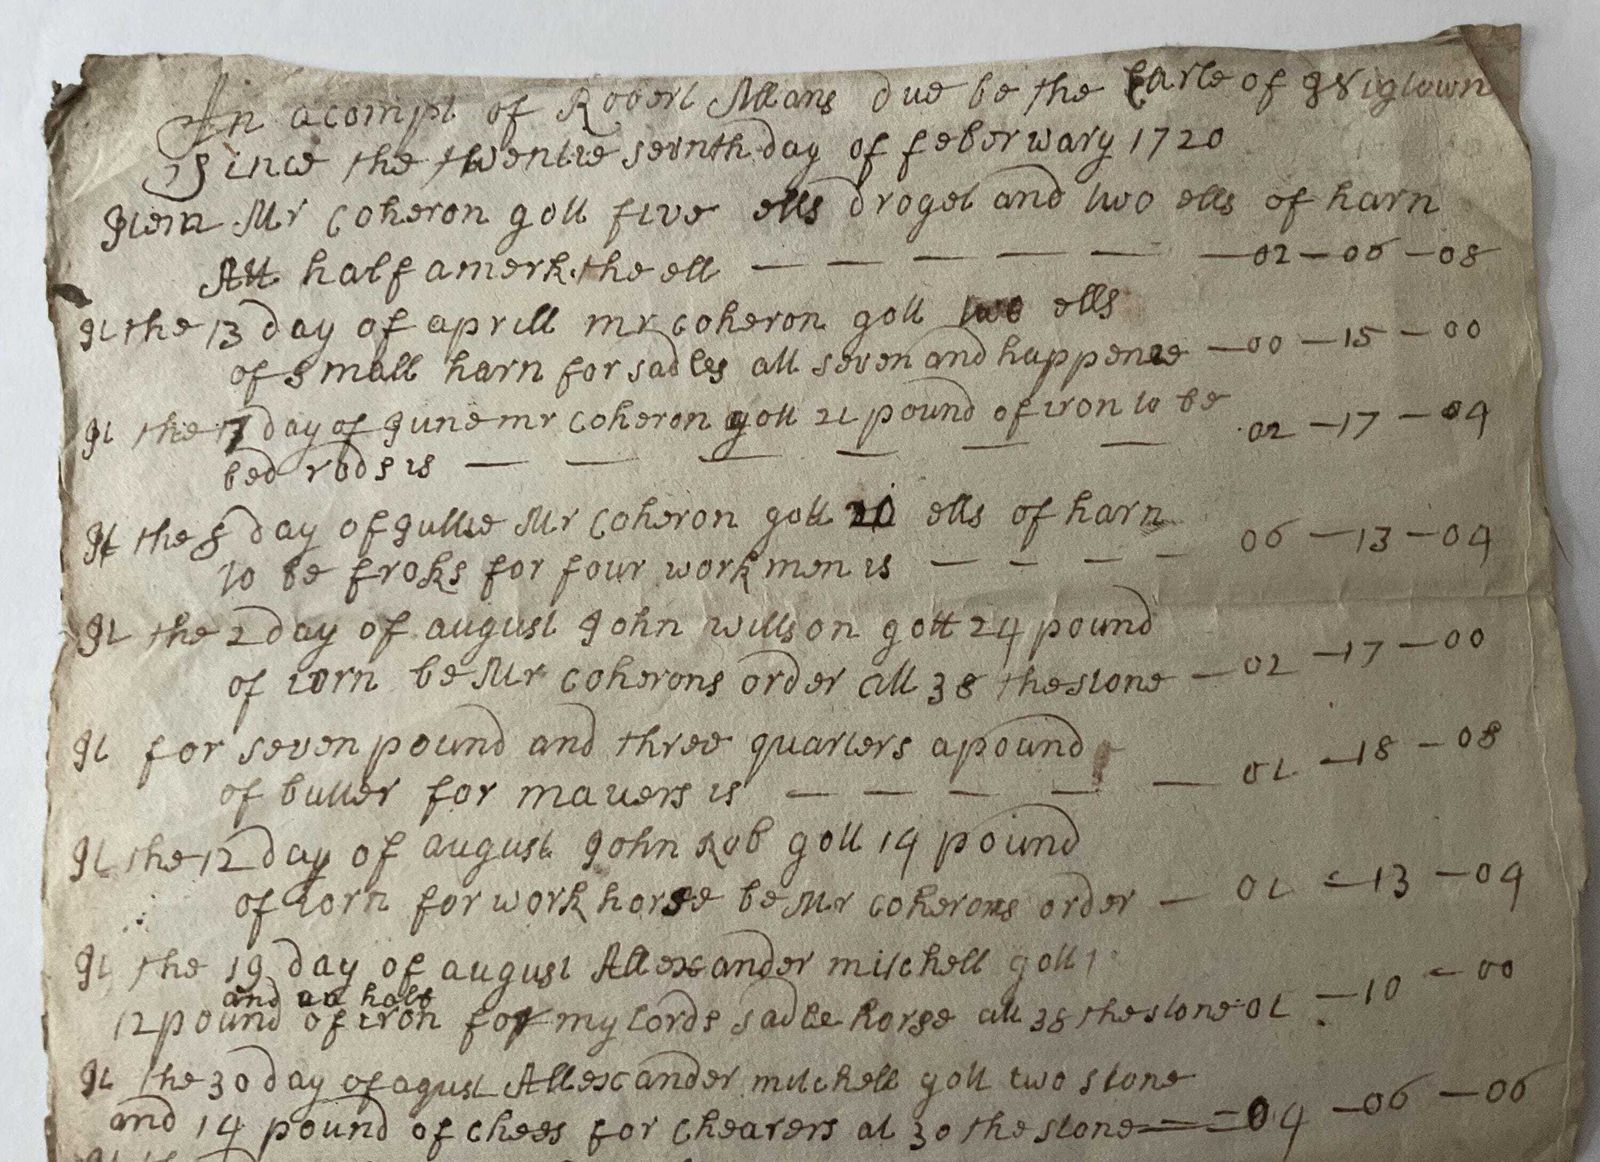 An acompt of Robert Allans due be the Earle of Wigtown
Since the twentie sevnth day of feberwary 1720
Item Mr Coheron gott five ells drogel and two ells of harn
Att half a merk the ell — — — — — — 02 — 06 — 08
It the 13 day of aprill mr coheron gott two ells
of small harn for sadles att seven and happence — 00 — 15 — 00
It the 17 day of June mr Coheron gott 21 pound of iron to be
bed rods is — — — — — — 02 — 17 — 04
It the 8 day of Jullie Mr Coheron gott 20 ells of harn
to be froks for four workmen is — — — — 06 — 13 — 04
It the 2 day of august John willson gott 24 pound
of iorn be Mr Coherons order att 38 the stone — 02 — 17 — 00
It for seven pound and three quarters a pound
of butter for mavers is — — — — — 01 — 18 — 08
It the 12 day of august John Rob gott 14 pound
of iorn for work horse be Mr Coherons order — 01 — 13 — 04
It the 19 day of august Allexander mitchell gott
and a half
12 pound of iron for my lords sadle horse att 38 the stone 01 — 10 — 00
It the 30 day of agust Allexander mitchell gott two stone
and 14 pound of chees for chearers at 30 the stone — 04 — 06 — 06